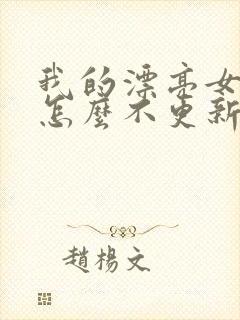 我的漂亮女
怎麼不更新
趙楊文